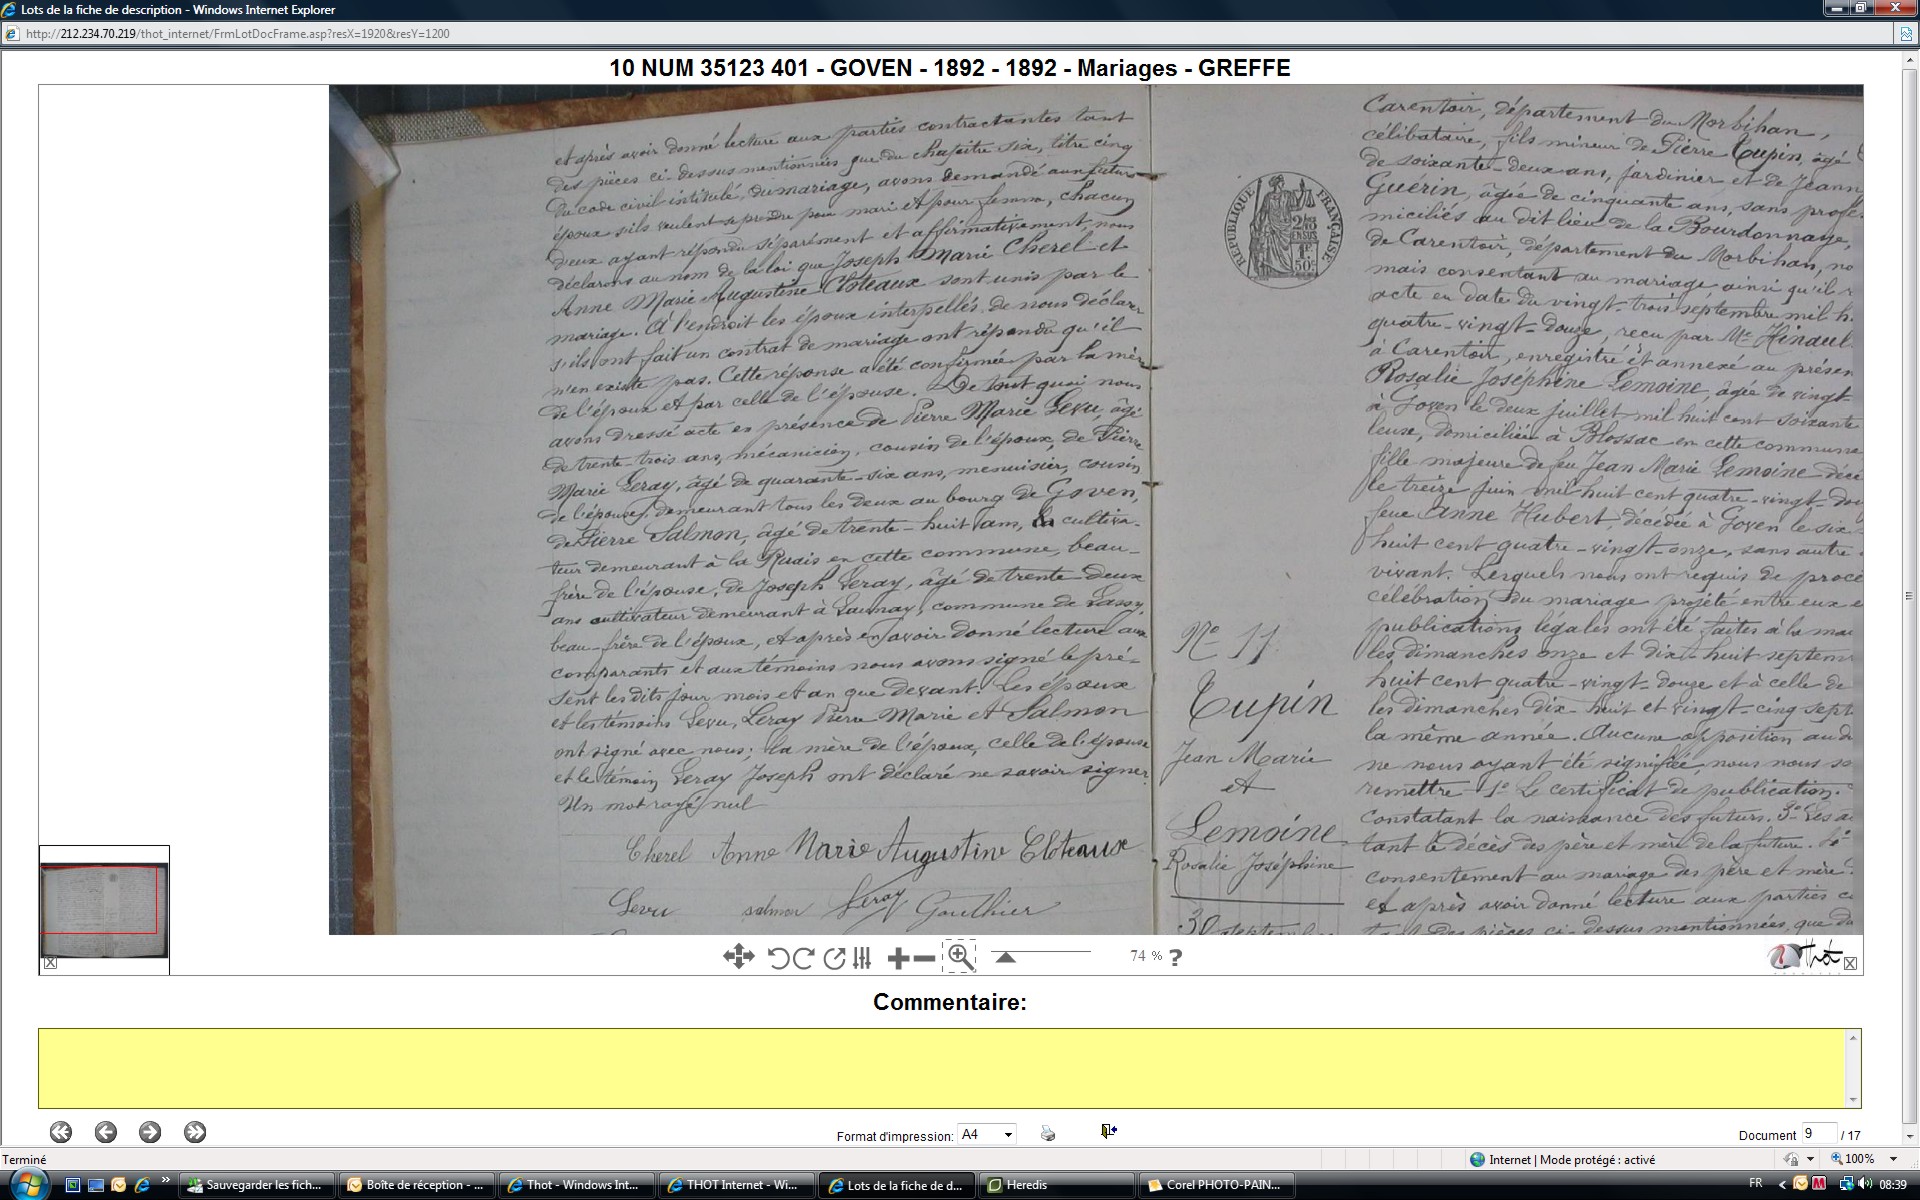 Lots de la fiche de description - Windows Internet Explorer
http://212.234.70.219/thot_internet/FrmLotDocFrame.asp?resX=1920&resY=1200
10 NUM 35123 401 - GOVEN - 1892 - 1892 - Mariages - GREFFE
et après avoir donné lecture aux parties contractantes tant
des pièces ci-dessus mentionnées que du chapitre six, titre cinq
du code civil intitulé, du mariage, avons demandé aux futurs
époux s'ils veulent se prendre pour mari et pour femme, chacun
d'eux ayant répondu séparément et affirmativement, nous
déclarons au nom de la loi que Joseph Marie Cherel et
Anne Marie Augustine Cloteaux sont unis par le
mariage. A l'endroit les époux interpellés de nous déclarer
s'ils ont fait un contrat de mariage ont répondu qu'il
n'en existe pas. Cette réponse a été confirmée par la mère
de l'époux et par celle de l'épouse. De tout quoi nous
avons dressé acte en présence de Pierre Marie Levu, âgé
de trente-trois ans, mécanicien, cousin de l'époux, de Pierre
Marie Leray, âgé de quarante-six ans, menuisier, cousin
de l'épouse, demeurant tous les deux au bourg de Goven,
de Pierre Salmon, âgé de trente-huit ans, cultiva-
teur demeurant à la Ruais en cette commune, beau-
frère de l'épouse, de Joseph Leray, âgé de trente deux
ans cultivateur demeurant à Launay, commune de Lassy,
beau-frère de l'époux, et après en avoir donné lecture aux
comparants et aux témoins nous avons signé le pré-
sent les dits jour mois et an que devant. Les époux
et les témoins Levu, Leray Pierre Marie et Salmon
ont signé avec nous; la mère de l'époux, celle de l'épouse
et le témoin Leray Joseph ont déclaré ne savoir signer.
Un mot rayé nul
Cherel Anne Marie Augustine Cloteaux
Levu salmon Leray Gauthier
RÉPUBLIQUE FRANÇAISE
2/10 EN SUS
1F 50C
N° 11
Tupin
Jean Marie
et
Lemoine
Rosalie Joséphine
30 septembre
Carentoir, département du Morbihan,
célibataire, fils mineur de Pierre Tupin, âgé
de soixante-deux ans, jardinier et de Jeann
Guérin, âgée de cinquante ans, sans profe
miciliés au dit lieu de la Bourdonnaye,
de Carentoir, département du Morbihan, no
mais consentant au mariage ainsi qu'il
acte en date du vingt-trois septembre mil h
quatre-vingt-douze, reçu par Me Hinaul
à Carentoir, enregistré et annexé au présen
Rosalie Joséphine Lemoine, âgée de vingt-
à Goven le deux juillet mil huit cent soixante
leuse, domiciliée à Blossac en cette commune
fille majeure de feu Jean Marie Lemoine décé
le treize juin mil huit cent quatre-vingt-dou
feue Anne Hubert, décédée à Goven le six
huit cent quatre-vingt-onze, sans autre
vivant. Lesquels nous ont requis de procé
célébration du mariage projeté entre eux e
publications légales ont été faites à la mai
les dimanches onze et dix-huit septem
huit cent quatre-vingt-douze et à celle de
les dimanches dix-huit et vingt-cinq sept
la même année. Aucune opposition au d
ne nous ayant été signifiée, nous nous so
remettre 1° Le certificat de publication.
constatant la naissance des futurs. 3° Les ac
tant le décès des père et mère de la future. 4°
consentement au mariage des père et mère
et après avoir donné lecture aux parties co
tant des pièces ci-dessus mentionnées, que du
74 %
?
Thot
Commentaire:
Format d'impression: A4
Document 9 / 17
Terminé
Internet | Mode protégé : activé
100%
Sauvegarder les fich...
Boîte de réception - ...
Thot - Windows Int...
THOT Internet - Wi...
Lots de la fiche de d...
Heredis
Corel PHOTO-PAIN...
FR
08:39